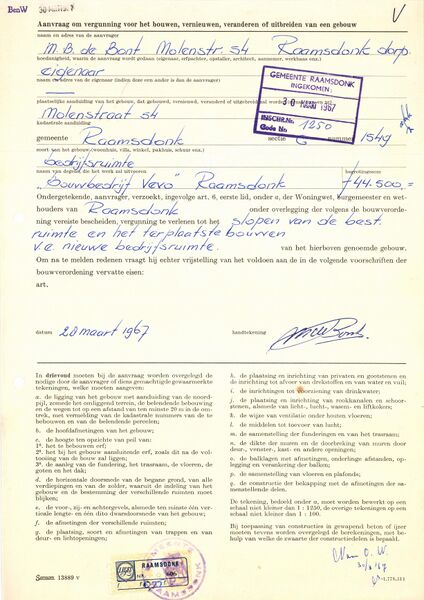 BenW
Aanvraag om vergunning voor het bouwen, vernieuwen, veranderen of uitbreiden van een gebouw
naam en adres van de aanvrager
M.B. de Bont Molenstr. 54 Raamsdonk dorp.
hoedanigheid, waarin de aanvraag wordt gedaan (eigenaar, erfpachter, opstaller, architect, aannemer, werkbaas enz.)
eigenaar
naam en adres van de eigenaar (indien deze een ander is dan de aanvrager)
GEMEENTE RAAMSDONK
INGEKOMEN:
30 MRT 1967
INSCHR.No.
Code No 1250
plaatselijke aanduiding van het gebouw, dat gebouwd, vernieuwd, veranderd of uitgebreid zal worden
Molenstraat 54
kadastrale aanduiding
gemeente Raamsdonk sectie nummer 1549
soort van het gebouw (woonhuis, villa, winkel, pakhuis, schuur enz.)
bedrijfsruimte
naam van degene, die het werk zal uitvoeren
"Bouwbedrijf Vevo" Raamsdonk f 44.500,=
Ondergetekende, aanvrager, verzoekt, ingevolge art. 6, eerste lid, onder a, der Woningwet, burgemeester en wet-
houders van Raamsdonk onder overlegging der volgens de bouwverorde-
ning vereiste bescheiden, vergunning te verlenen tot het slopen van de best.
ruimte en het terplaatse bouwen
v.e. nieuwe bedrijfsruimte. van het hierboven genoemde gebouw.
Om na te melden redenen vraagt hij echter vrijstelling van het voldoen aan de in de volgende voorschriften der
bouwverordening vervatte eisen:
art.
datum 28 maart 1967 handtekening
In drievoud moeten bij de aanvraag worden overgelegd de
nodige door de aanvrager of diens gemachtigde gewaarmerkte
tekeningen, welke moeten aangeven:
a. de ligging van het gebouw met aanduiding van de noord-
pijl, zomede het omliggend terrein, de belendende bebouwing
en de wegen tot op een afstand van ten minste 20 m in de om-
trek, met vermelding van de kadastrale nummers van de te
bebouwen en van de belendende percelen;
b. de hoofdafmetingen van het gebouw;
c. de hoogte ten opzichte van peil van:
1°. het te bebouwen erf;
2°. het bij het gebouw aansluitende erf, zoals dit na de vol-
tooiing van de bouw zal liggen;
3°. de aanleg van de fundering, het trasraam, de vloeren, de
goten en het dak;
d. de horizontale doorsneden van de begane grond, van alle
verdiepingen en van de zolder, waaruit de indeling van het
gebouw en de bestemming der verschillende ruimten moet
blijken;
e. de voor-, zij- en achtergevels, alsmede ten minste één verti-
cale lengte- en één dito dwarsdoorsnede van het gebouw;
f. de afmetingen der verschillende ruimten;
g. de plaatsing, soort en afmetingen van trappen en de af-
metingen van deuren en vensters;
h. de plaatsing en inrichting van privaten en gootstenen en de
inrichting tot afvoer van drekstoffen en van water en vuil;
i. de inrichtingen tot voorziening van drinkwater;
j. de plaatsing en inrichting van rookkanalen en schoor-
stenen, alsmede van licht-, lucht-, wasem- en liftkokers;
k. de wijze van ventilatie onder houten vloeren;
l. de middelen tot toevoer van lucht;
m. de samenstelling der funderingen en van het trasraam;
n. de dikte der muren en de doorbreking van muren door
deur-, venster-, kast- en andere openingen;
o. de balklagen met afmetingen, onderlinge afstanden, op-
legging en verankering der balken;
p. de samenstelling van vloeren en plafonds;
q. de constructie der bekapping met de afmetingen der sa-
menstellende delen.
De tekening, bedoeld onder a, moet worden bewerkt op een
schaal niet kleiner dan 1 : 1250, de overige tekeningen op een
schaal niet kleiner dan 1 : 100.
Bij toepassing van constructies in gewapend beton of ijzer
moeten tevens worden overgelegd de berekeningen, met be-
hulp waarvan de zwaarte der constructiedelen is bepaald.
RAAMSDONK
Samsom 13889 v